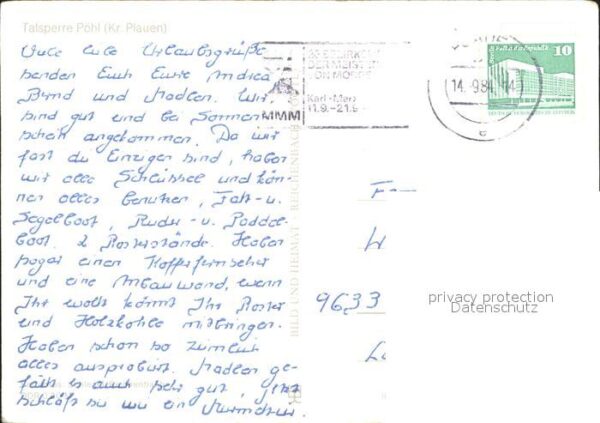 Talsperre Pöhl (Kr. Plauen)
Viele liebe Urlaubsgrüße
senden Euch Eure Andrea
Bernd und Madlen. Wir
sind gut und bei Sonnen-
schein angekommen. Da wir
fast die Einzigen sind, haben
wir alle Schlüssel und kön-
nen alles benutzen, Falt- u.
Segelboot, Ruder- u. Paddel-
boot. 2 Rosterstände. Haben
sogar einen Kofferfernseher
und eine Anbauwand, wenn
Ihr wollt könnt Ihr Roster
und Holzkohle mitbringen.
Haben schon so ziemlich
alles ausprobiert. Madlen ge-
fällt es auch sehr gut, jetzt
schläft sie wie ein Murmeltier.
BILD UND HEIMAT REICHENBACH
MMM
DER MEISTER
VON MORGEN
Karl-Marx
11.9.-21.9.
14.-9.84
10
9633
privacy protection
Datenschutz